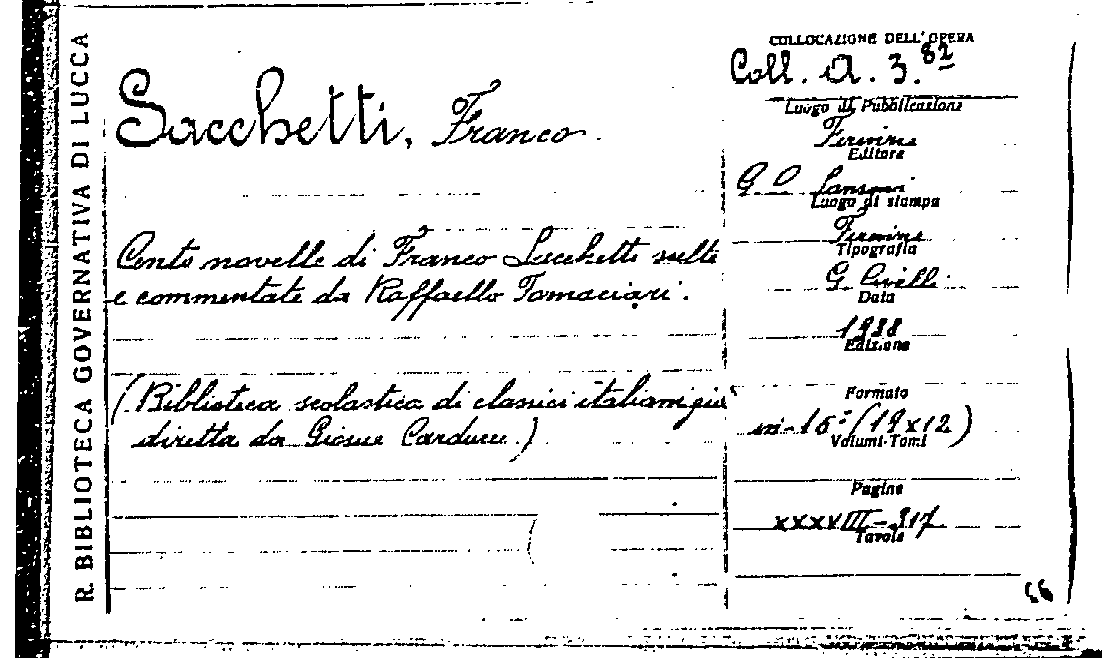 R. BIBLIOTECA GOVERNATIVA DI LUCCA
Sacchetti, Franco.
Cento novelle di Franco Sacchetti scelte
e commentate da Raffaello Fornaciari.
(Biblioteca scolastica di classici italiani già
diretta da Giosue Carducci.)
COLLOCAZIONE DELL'OPERA
Coll. A. 3. 82
Luogo di Pubblicazione
Firenze
Editore
G. C. Sansoni
Luogo di stampa
Firenze
Tipografia
G. Civelli
Data
Edizione
Formato
in-16° (19x12)
Volumi-Tomi
Pagine
XXXVIII-317
Tavole